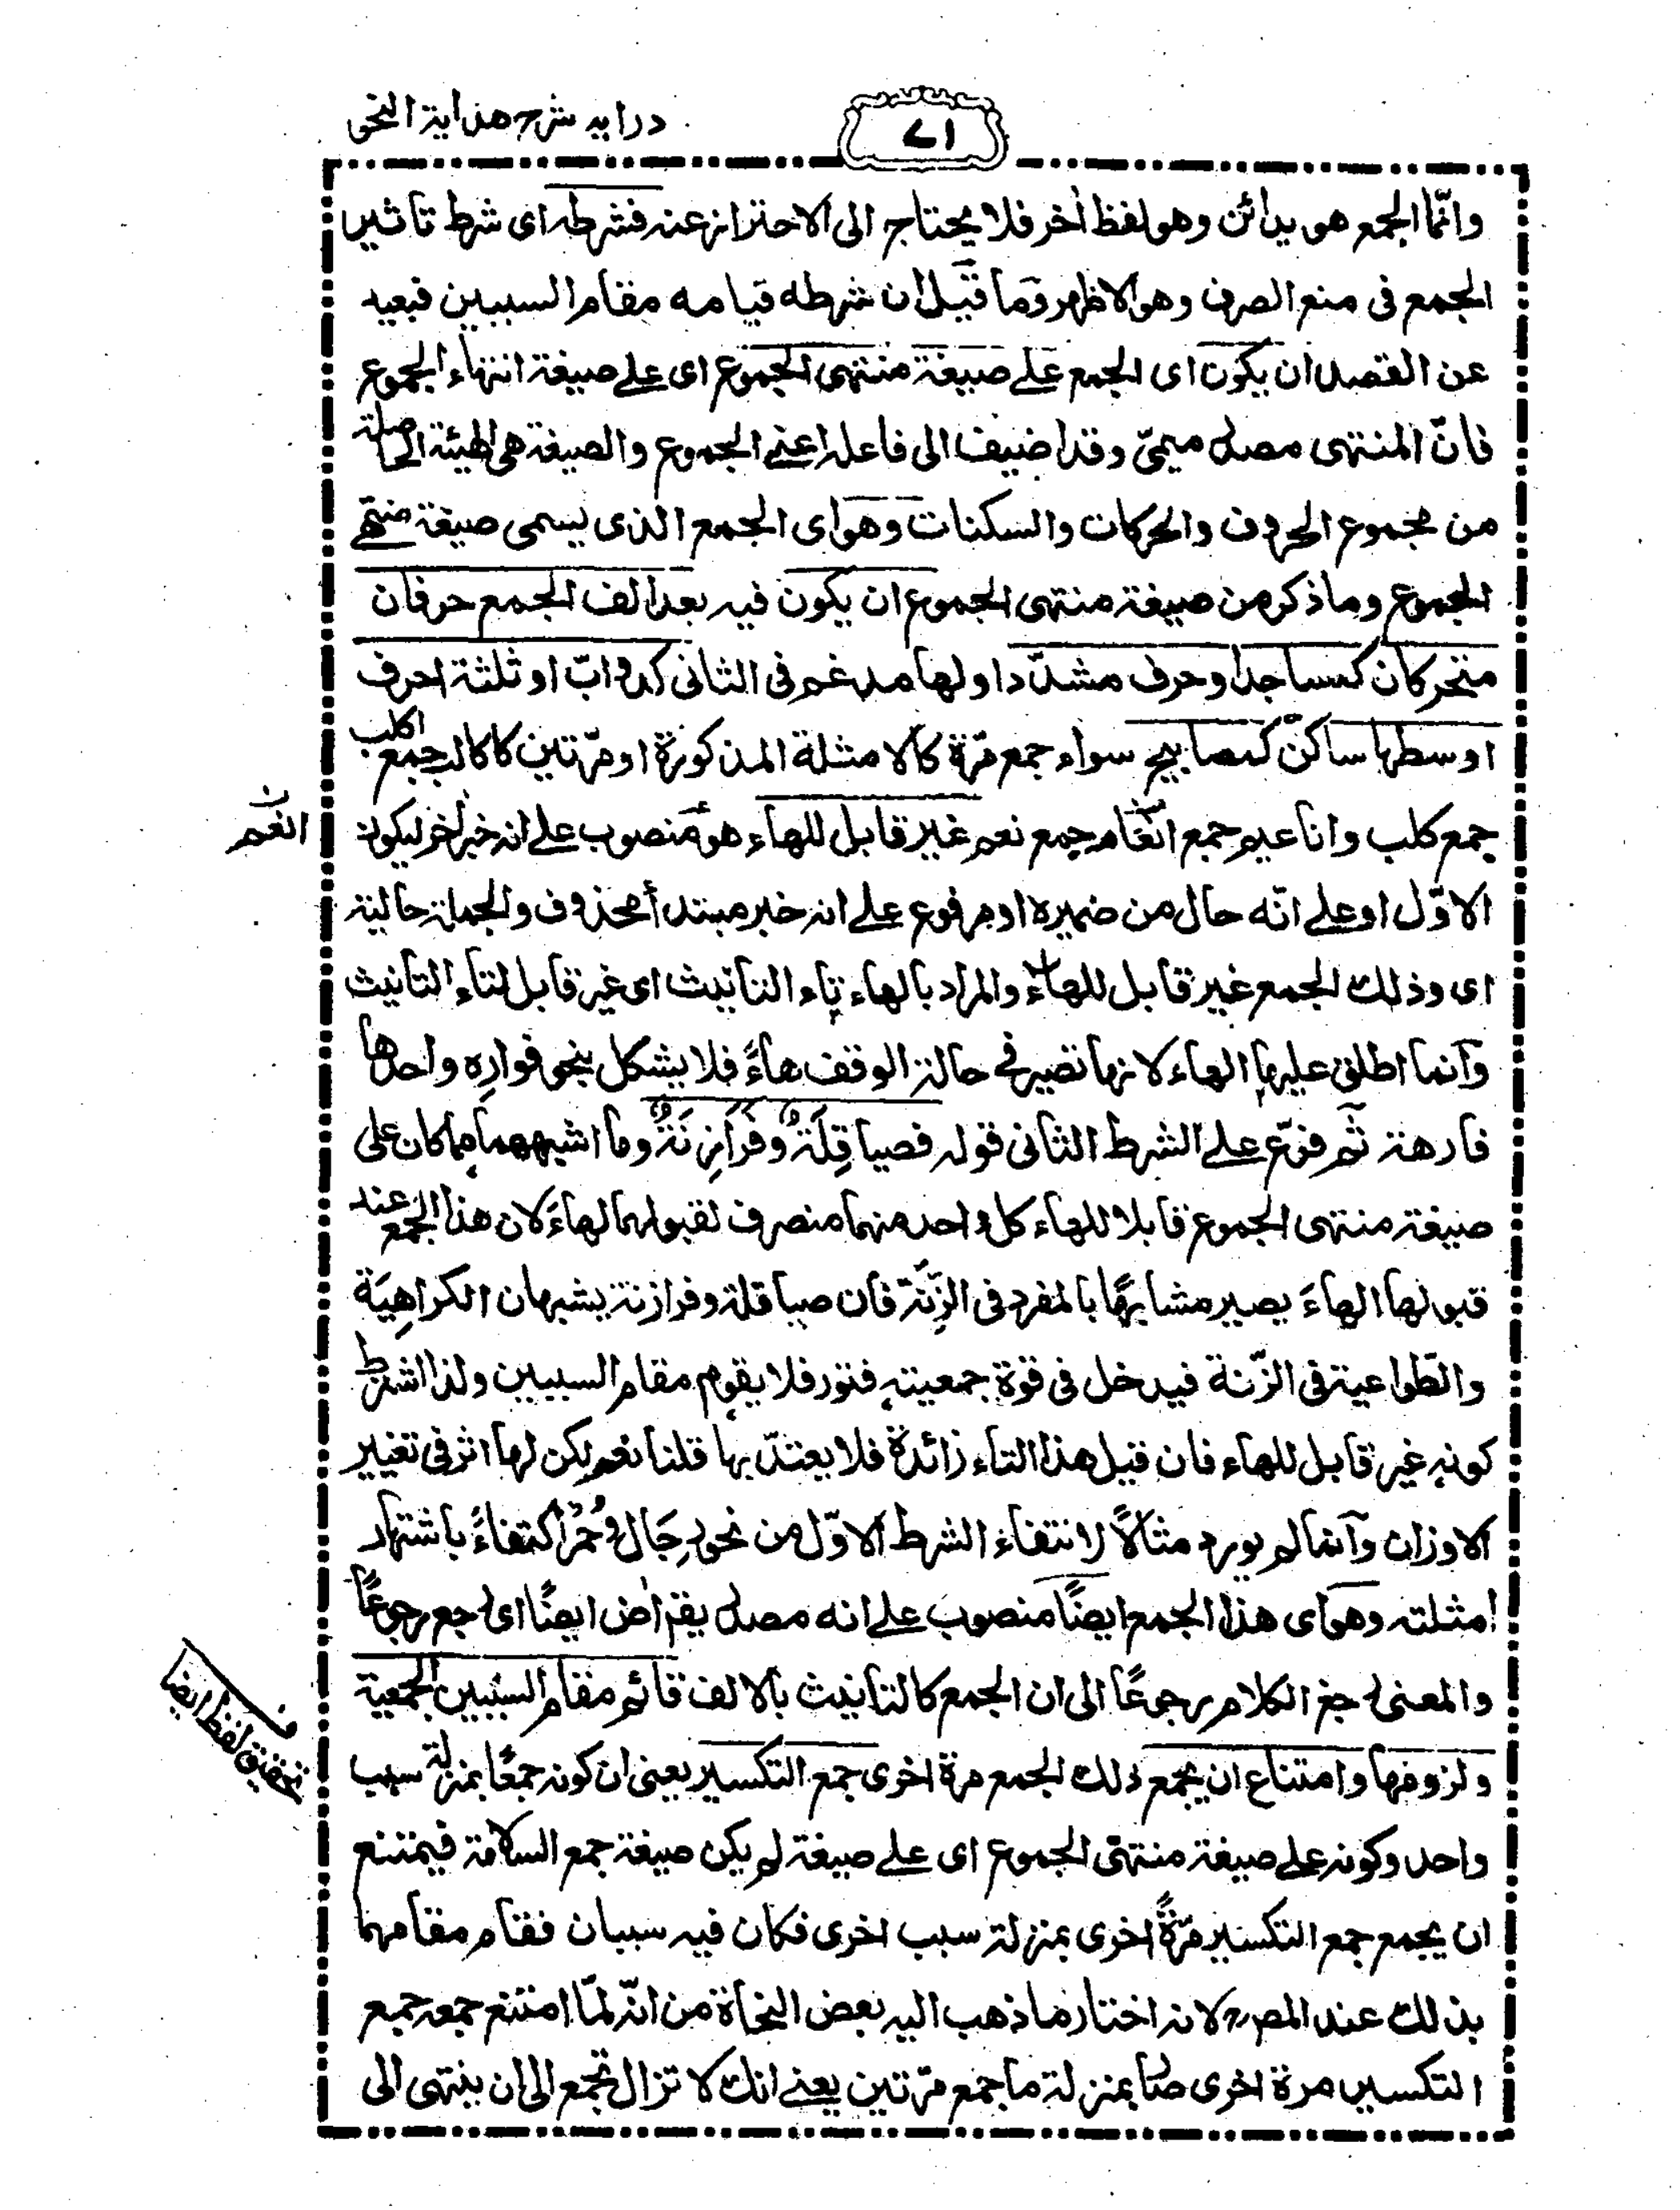 درايه شرح هداية النحو
٧١
وانّما الجمع هو يدائن وهو لفظ اٰخر فلا يحتاج الى الاحتراز عنه فشرطه اى شرط تاثير
الجمع فى منع الصرف وهو الاظهر وما قيل ان شرطه قيامه مقام السببين فبعيد
عن القصد ان يكون اى الجمع على صيغة منتهى الجموع اى على صيغة انتهاء الجموع
فانّ المنتهى مصدر ميمىّ وقد اضيف الى فاعله اعنى الجموع والصيغة هى الهيئة الحاصلة
من مجموع الحروف والحركات والسكنات وهو اى الجمع الذى يسمى صيغة منتهى
الجموع وما ذكر من صيغة منتهى الجموع ان يكون فيه بعد الف الجمع حرفان
متحركان كمساجد او حرف مشدّد اولها مدغم فى الثانى كدوابّ او ثلثة احرف
اوسطها ساكن كمصابيح سواء جمع مرّة كالامثلة المذكورة او مرّتين كاكالب جمع اكلب
جمع كلب واناعيم جمع انعام جمع نعم غير قابل للهاء هو منصوب على انه خبر اٰخر ليكون
النعم
الاوّل او على انّه حال من ضميره او مرفوع على انه خبر مبتدأ محذوف والجملة حالية
اى وذلك الجمع غير قابل للهاء والمراد بالهاء تاء التانيث اى غير قابل لتاء التأنيث
وانما اطلق عليها الهاء لانها تصير فى حالة الوقف هاءً فلا يشكل بنحو فواره واحدها
فارهة ثم فرّع على الشرط الثانى قوله فصياقِلَةٌ وفَرَازِنَةٌ وما اشبههما مما كان على
صيغة منتهى الجموع قابلا للهاء كل واحد منهما منصرف لقبولهما الهاءَ لان هذا الجمع عند
قبولها الهاءَ يصير مشابهًا بالمفرد فى الزِّنَة فان صياقلة وفرازنة يشبهان الكراهِيَة
والطّواعية فى الزّنة فيدخل فى قوة جمعيته فتور فلا يقوم مقام السببين ولذا اشترط
كونه غير قابل للهاء فان قيل هذا التاء زائدة فلا يعتدّ بها قلنا نعم لكن لها اثر فى تغيير
الاوزان وانما لم يورد مثالًا لانتفاء الشرط الاوّل من نحو رِجَال وحُمُر اكتفاءً باشتهار
امثلته وهو اى هذا الجمع ايضًا منصوب على انه مصدر يقر اٰض ايضًا اى رجع رجوعًا
والمعنى رجع الكلام رجوعًا الى ان الجمع كالتانيث بالالف قائم مقام السببين الجمعية
تحقيق لفظ ايضا
ولزومها وامتناع ان يجمع ذلك الجمع مرة اخرى جمع التكسير يعنى ان كونه جمعًا بمنزلة سبب
واحد وكونه على صيغة منتهى الجموع اى على صيغة لم يكن صيغة جمع السلامة فيمتنع
ان يجمع جمع التكسير مرّةً اخرى بمنزلة سبب اخرى فكان فيه سببان فقام مقامهما
بذلك عند المصرح لانه اختار ما ذهب اليه بعض النحاة من انّه لمّا امتنع جمعه جمع
التكسير مرة اخرى صار بمنزلة ما جمع مرّتين يعنى انك لا تزال تجمع الى ان ينتهى الى